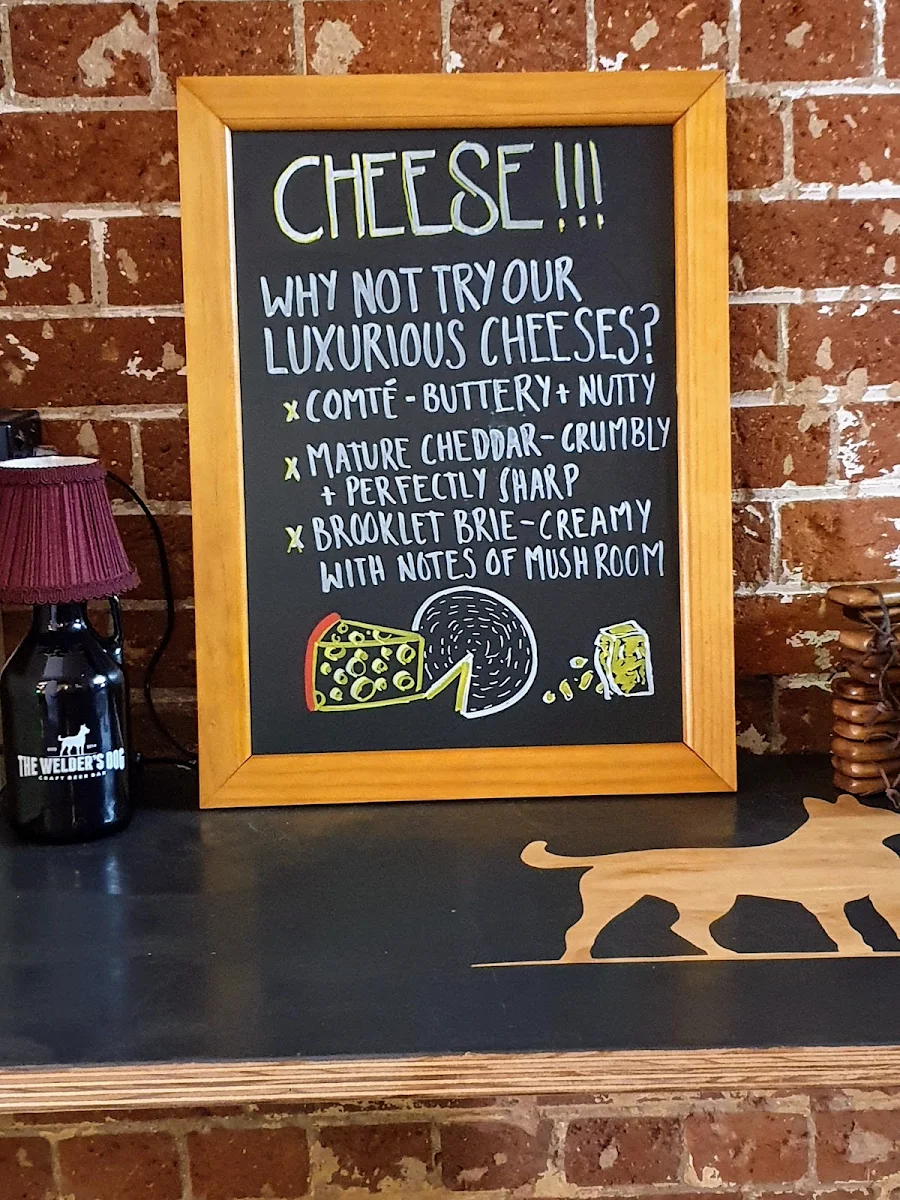 CHEESE!!!
WHY NOT TRY OUR
LUXURIOUS CHEESES?
x COMTÉ - BUTTERY + NUTTY
x MATURE CHEDDAR - CRUMBLY
+ PERFECTLY SHARP
x BROOKLET BRIE - CREAMY
WITH NOTES OF MUSHROOM
THE WELDER'S DOG
CRAFT BEER BAR